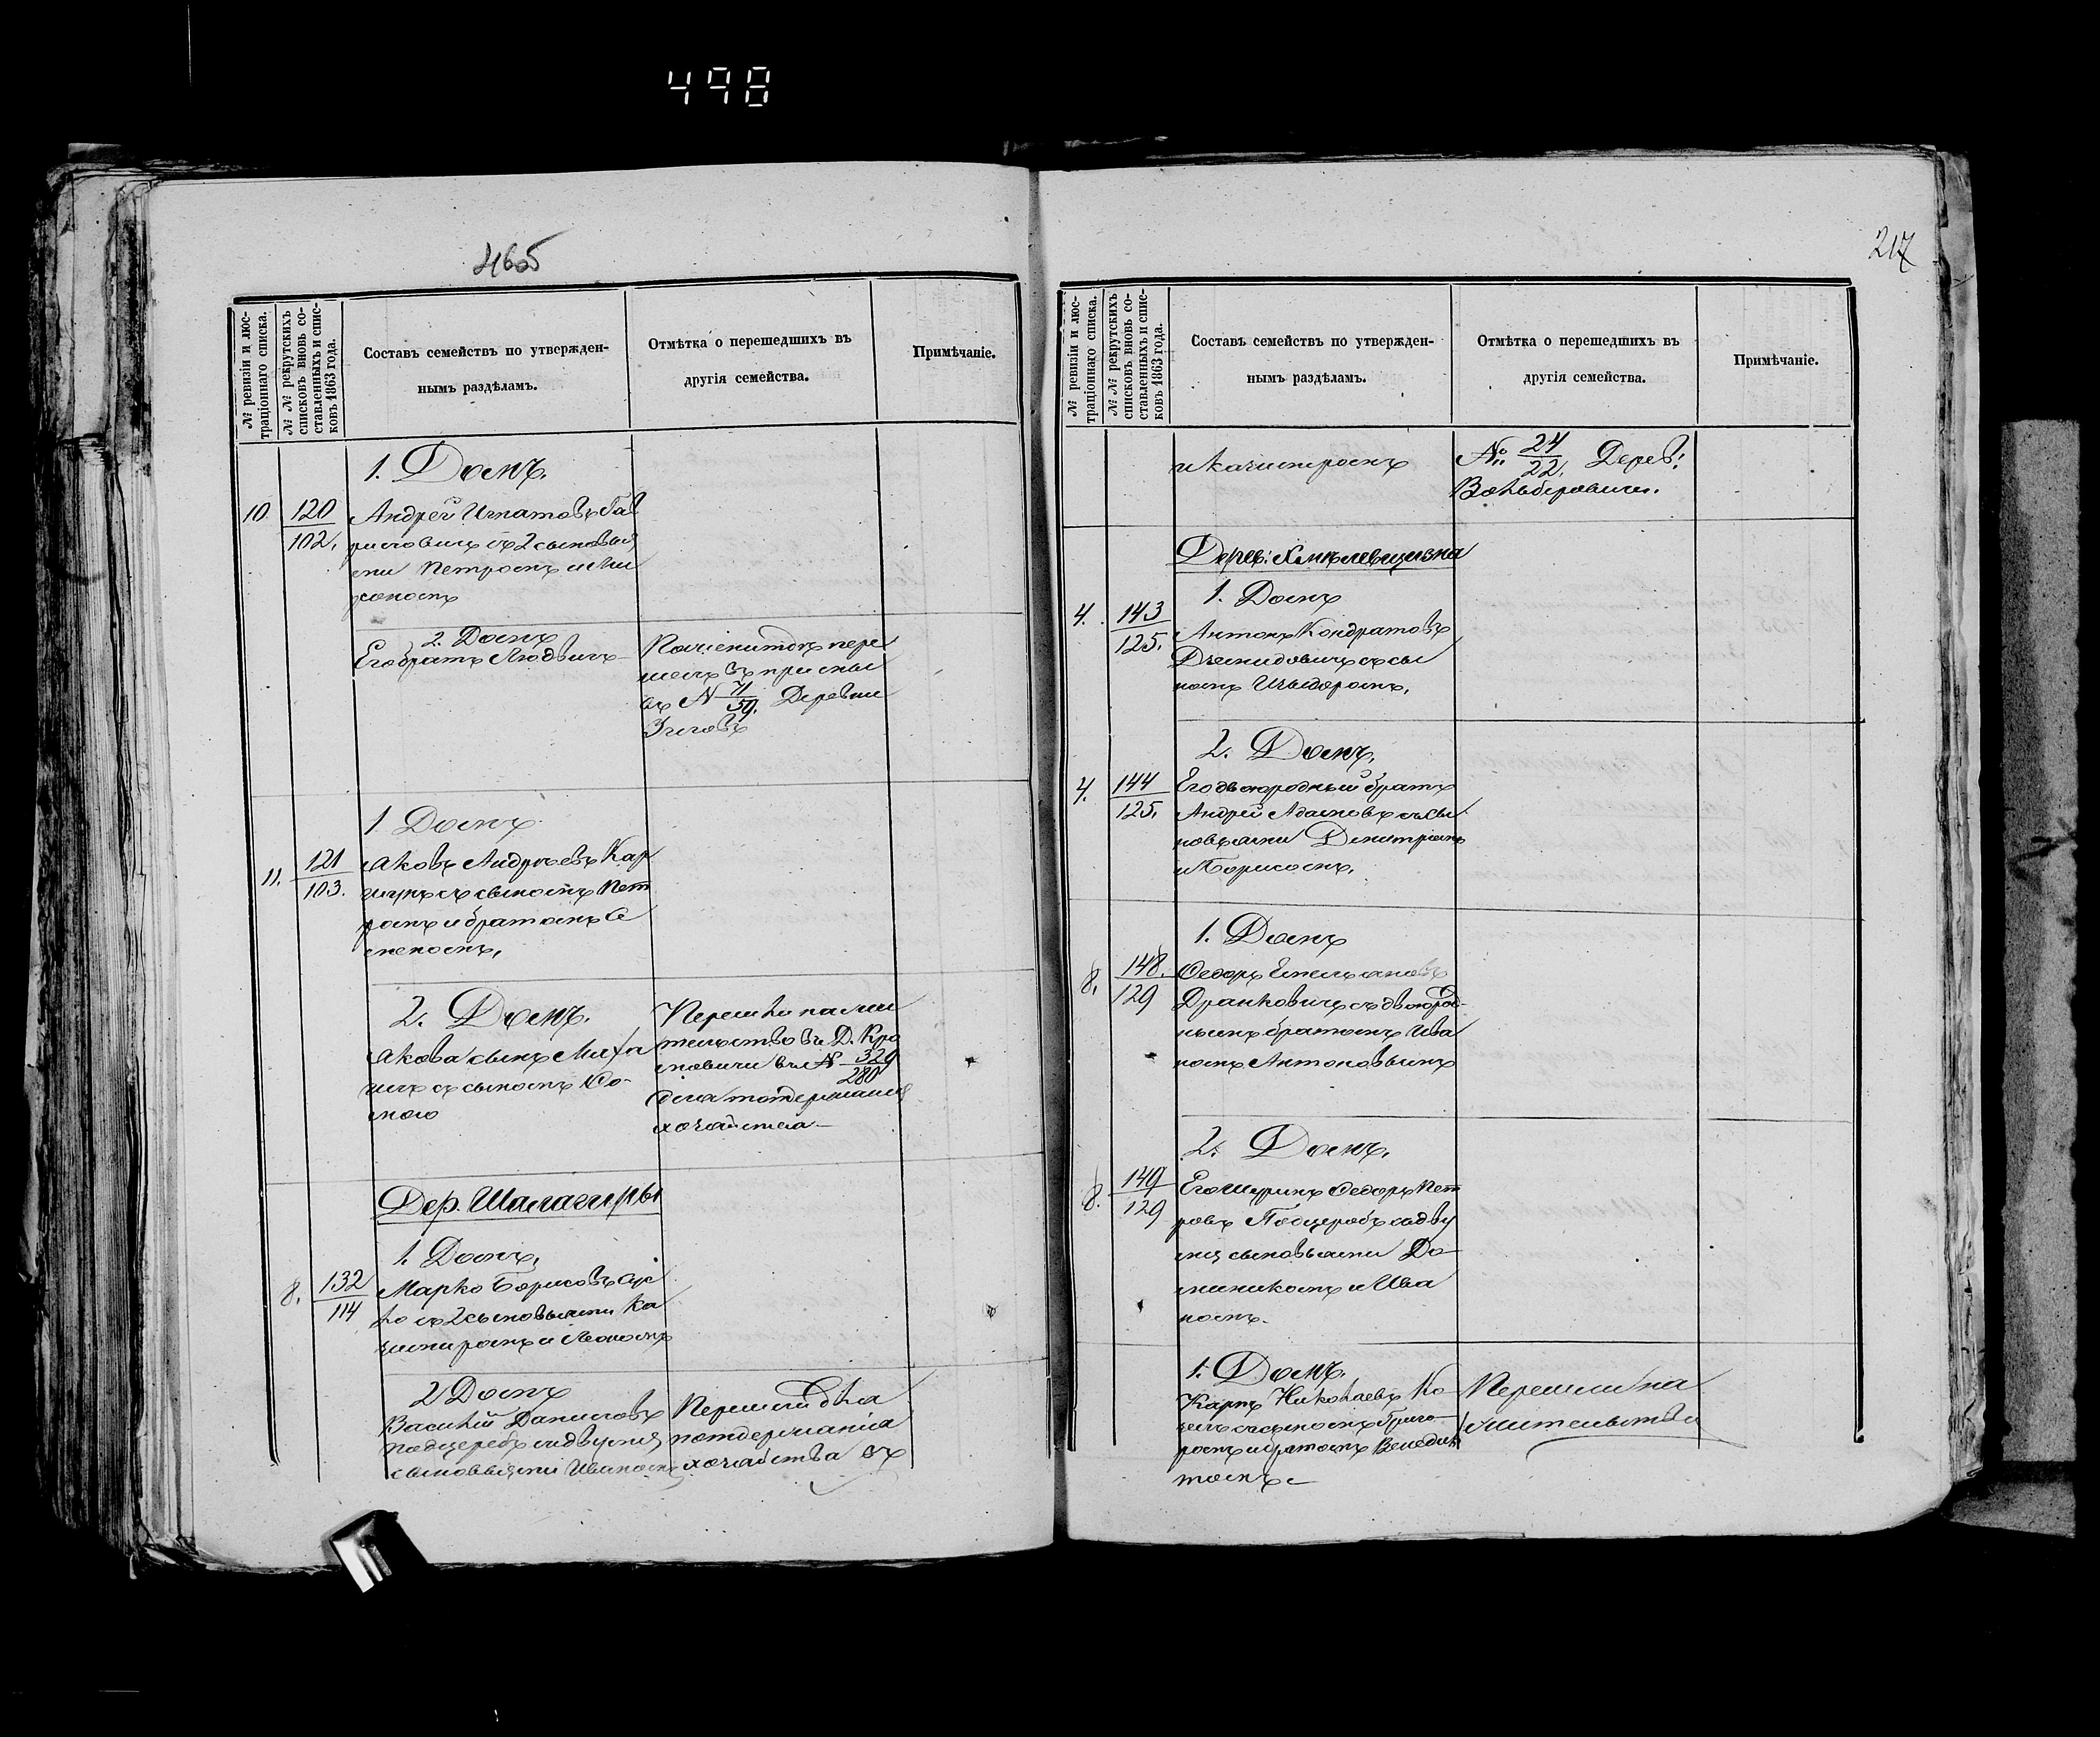 498
465
№ ревизіи и люс-
траціоннаго списка.
№ № рекрутскихъ
списковъ вновь со-
ставленныхъ и спис-
ковъ 1863 года.
Составъ семействъ по утвержден-
нымъ раздѣламъ.
Отмѣтка о перешедшихъ въ
другія семейства.
Примѣчаніе.
1. Домъ.
10. 120/102. Андрей Игнатовъ Гав
риловичъ съ 2 сыновья
ми Петромъ и
2. Домъ
Его братъ Людвигъ
пере
шелъ въ примы
въ № 71/59. Деревни
1 Домъ
11. 121/103. Яковъ Андреевъ Кар
съ сыномъ Пет
ромъ и братомъ Се
меномъ.
2. Домъ.
Якова сынъ Миха
илъ съ сыномъ Фо
мою
Перешли на жи
тельство въ Д. Кро
мовичи въ № 329/280
для поддержанія
хозяйства
Дер. Шалагиры
1. Домъ.
8. 132/114 Марко Борисовъ
съ 2 сыновьями Ка
зимиромъ и Леономъ
2 Домъ
Василій Даниловъ
Подцеребъ съ двумя
сыновьями Иваномъ
Перешли для
поддержанія
хозяйства въ
217
№ ревизіи и люс-
траціоннаго списка.
№ № рекрутскихъ
списковъ вновь со-
ставленныхъ и спис-
ковъ 1863 года.
Составъ семействъ по утвержден-
нымъ раздѣламъ.
Отмѣтка о перешедшихъ въ
другія семейства.
Примѣчаніе.
и Казимромъ
№ 24/22. Дерев:
Вольберовичи.
Дерев: Хмѣлевщизна
1. Домъ
4. 143/125. Антонъ Кондратовъ
Демидовичъ съ сы
номъ Изыдоромъ.
2. Домъ.
4. 144/125. Его двоюродный братъ
Андрей Адамовъ съ сы
новьями Дмитріемъ
и Борисомъ.
1. Домъ
8. 148./129 Федоръ Емельяновъ
Дранковичъ съ двоюрод-
нымъ братомъ Ива
номъ Антоновымъ
2. Домъ.
8. 149/129 Его шуринъ Федоръ Пет
ровъ Подцеребъ съ дву
мя сыновьями До
миникомъ и Ива
номъ.
1. Домъ.
Карпъ Николаевъ Ко
зелъ съ сыномъ Григо
ромъ и братомъ Венедик
томъ
Перешли на
жительство